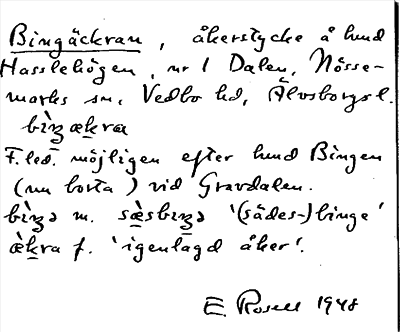 Bingäckran, åkerstycke å hmd
Hasslehögen, nr 1 Dalen, Nösse-
marks sn, Vedbo hd, Älvsborgs l.
bìŋækra
F.led. möjligen efter hmd Bingen
(nu borta) vid Gravdalen.
bìŋə m. sæ̀sbiŋə '(sädes-)binge'
æ̀kra f. 'igenlagd åker'.
E Rosell 1948